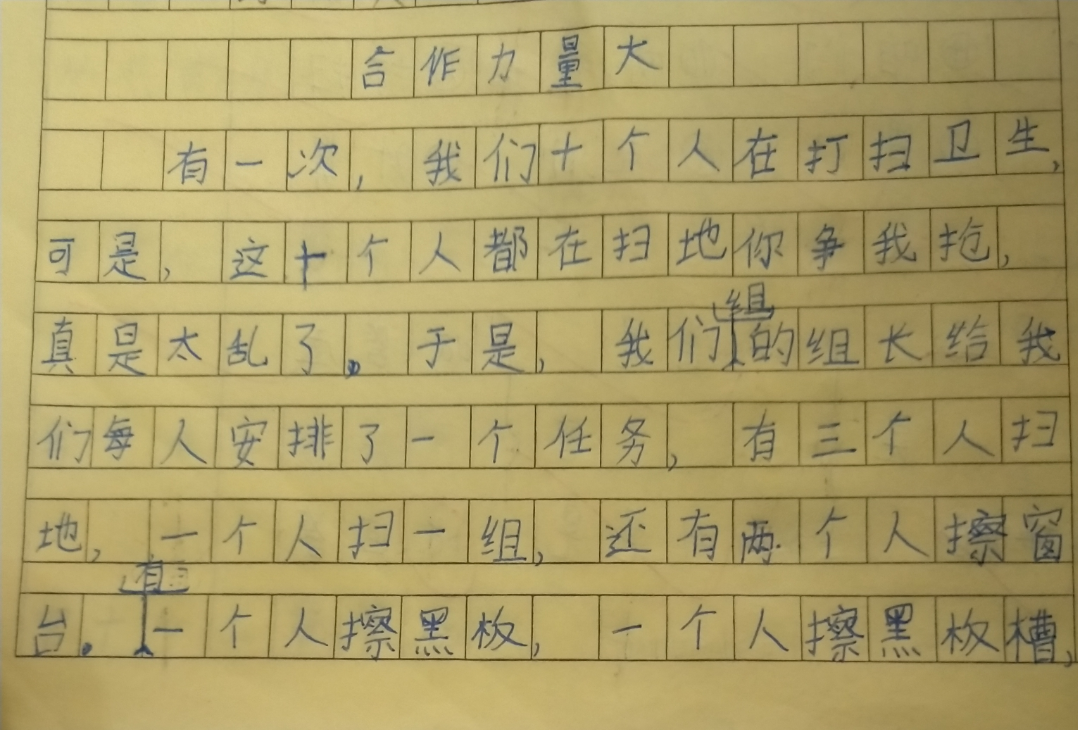 合作力量大
有一次，我们十个人在打扫卫生，
可是，这十个人都在扫地你争我抢，
真是太乱了。于是，我们组的组长给我
们每人安排了一个任务，有三个人扫
地，一个人扫一组，还有两个人擦窗
台。有一个人擦黑板，一个人擦黑板槽，